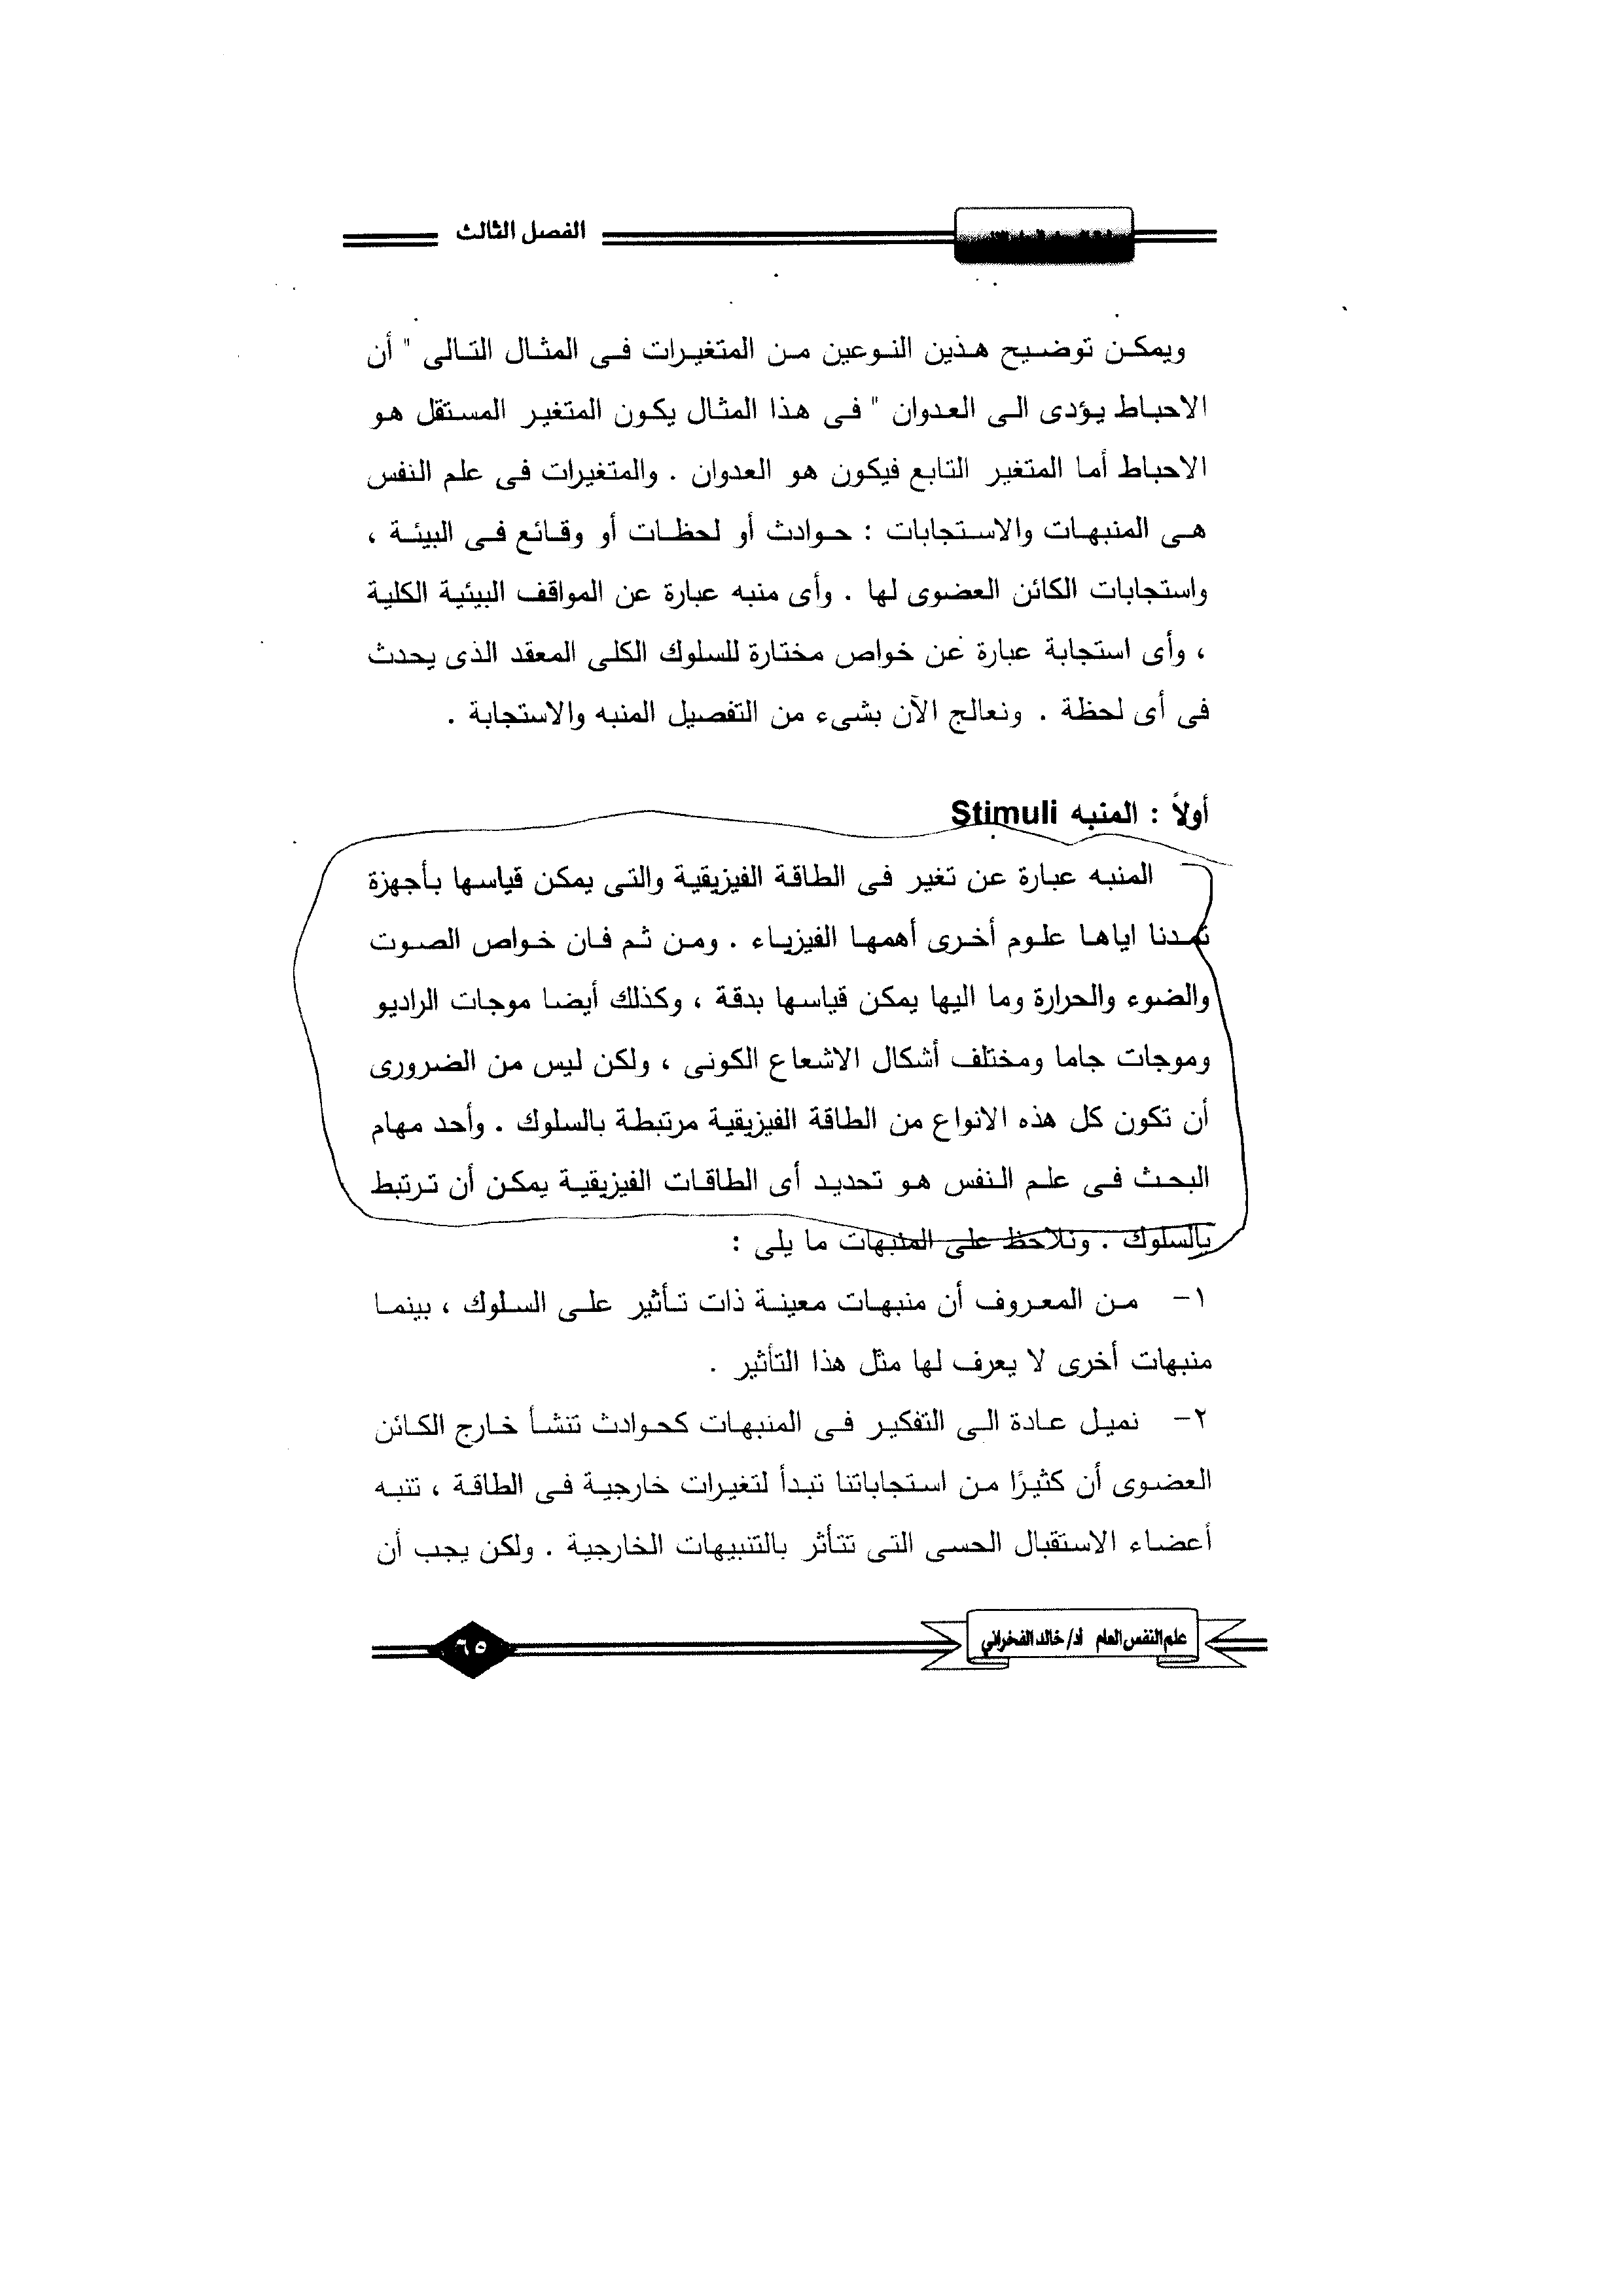 الفصل الثالث
ويمكن توضيح هذين النوعين من المتغيرات فى المثال التالى " أن
الاحباط يؤدى الى العدوان " فى هذا المثال يكون المتغير المستقل هو
الاحباط أما المتغير التابع فيكون هو العدوان . والمتغيرات فى علم النفس
هى المنبهات والاستجابات : حوادث أو لحظات أو وقائع فى البيئة ،
واستجابات الكائن العضوى لها . وأى منبه عبارة عن المواقف البيئية الكلية
، وأى استجابة عبارة عن خواص مختارة للسلوك الكلى المعقد الذى يحدث
فى أى لحظة . ونعالج الآن بشىء من التفصيل المنبه والاستجابة .
أولاً : المنبه Stimuli
المنبه عبارة عن تغير فى الطاقة الفيزيقية والتى يمكن قياسها بأجهزة
تمدنا اياها علوم أخرى أهمها الفيزياء . ومن ثم فان خواص الصوت
والضوء والحرارة وما اليها يمكن قياسها بدقة ، وكذلك أيضا موجات الراديو
وموجات جاما ومختلف أشكال الاشعاع الكونى ، ولكن ليس من الضرورى
أن تكون كل هذه الانواع من الطاقة الفيزيقية مرتبطة بالسلوك . وأحد مهام
البحث فى علم النفس هو تحديد أى الطاقات الفيزيقية يمكن أن ترتبط
بالسلوك . ونلاحظ على المنبهات ما يلى :
١- من المعروف أن منبهات معينة ذات تأثير على السلوك ، بينما
منبهات أخرى لا يعرف لها مثل هذا التأثير .
٢- نميل عادة الى التفكير فى المنبهات كحوادث تنشأ خارج الكائن
العضوى أن كثيرًا من استجاباتنا تبدأ لتغيرات خارجية فى الطاقة ، تنبه
أعضاء الاستقبال الحسى التى تتأثر بالتنبيهات الخارجية . ولكن يجب أن
علم النفس العام أد/ خالد الفخراني
٦٥